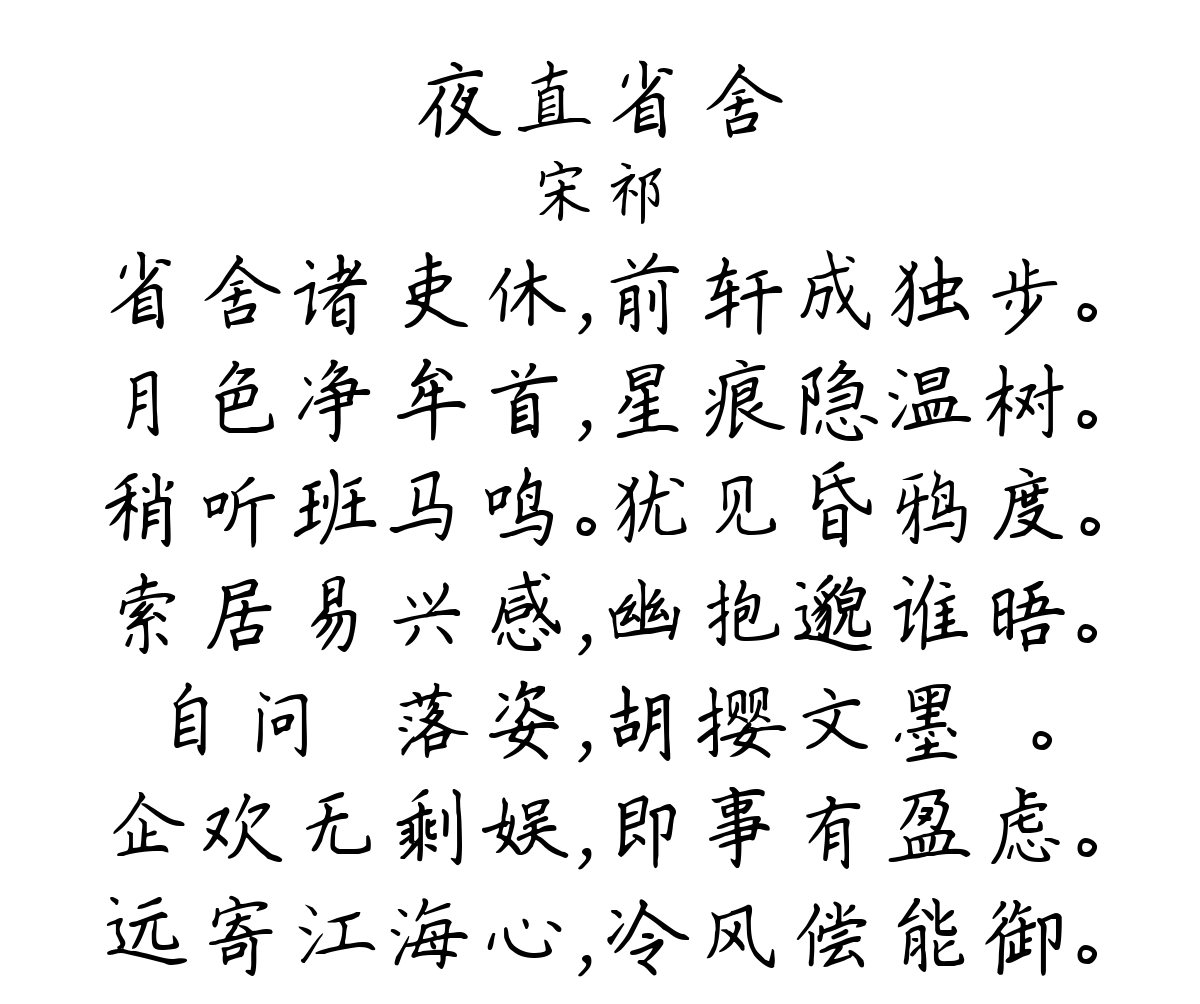 夜直省舍
宋祁
省舍诸吏休,前轩成独步。
月色净牟首,星痕隐温树。
稍听班马鸣。犹见昏鸦度。
索居易兴感,幽抱邈谁晤。
自问 落姿,胡撄文墨 。
企欢无剩娱,即事有盈虑。
远寄江海心,冷风偿能御。